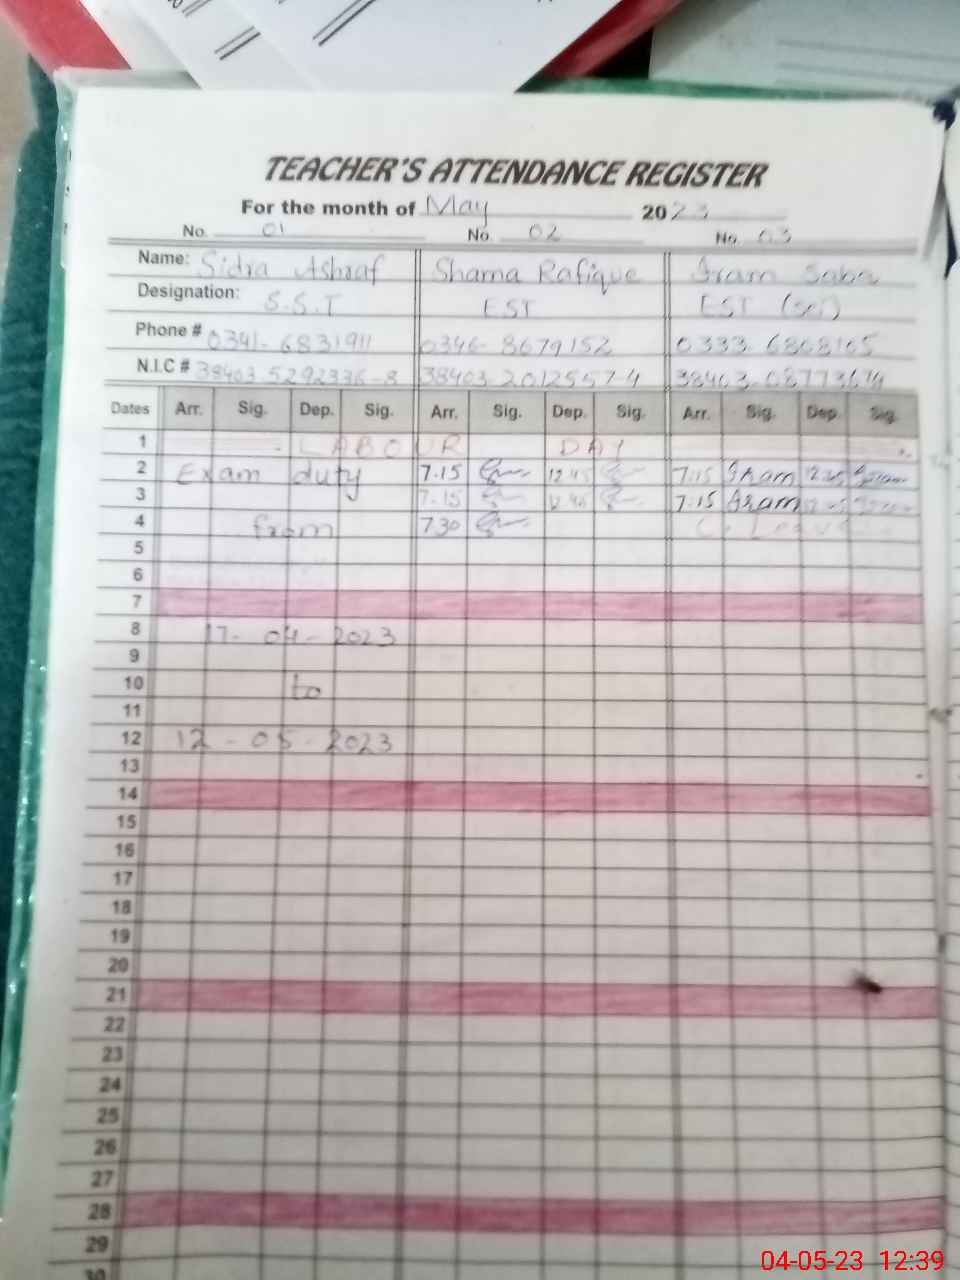 TEACHER'S ATTENDANCE REGISTER
For the month of May 2023
No. 01 No. 02 No. 03
Name: Sidra Ashraf Shama Rafique Iram Saba
Designation: S.S.T EST EST (sci)
Phone # 0341-6831911 0346-8679152 0333-6868165
N.I.C # 38403-5292336-8 38403-2012557-4
Dates Arr. Sig. Dep. Sig. Arr. Sig. Dep. Sig. Arr. Sig. Dep. Sig.
1 LABOUR DAY
2 Exam duty 7.15 12.45 7.15 Iram 12.45 Iram
3 7.15 12.45 7.15 Iram 12.45 Iram
4 from 7.30 C. Leave
5
6
7
8 17-04-2023
9
10 to
11
12 12-05-2023
13
14
15
16
17
18
19
20
21
22
23
24
25
26
27
28
29
30
04-05-23 12:39